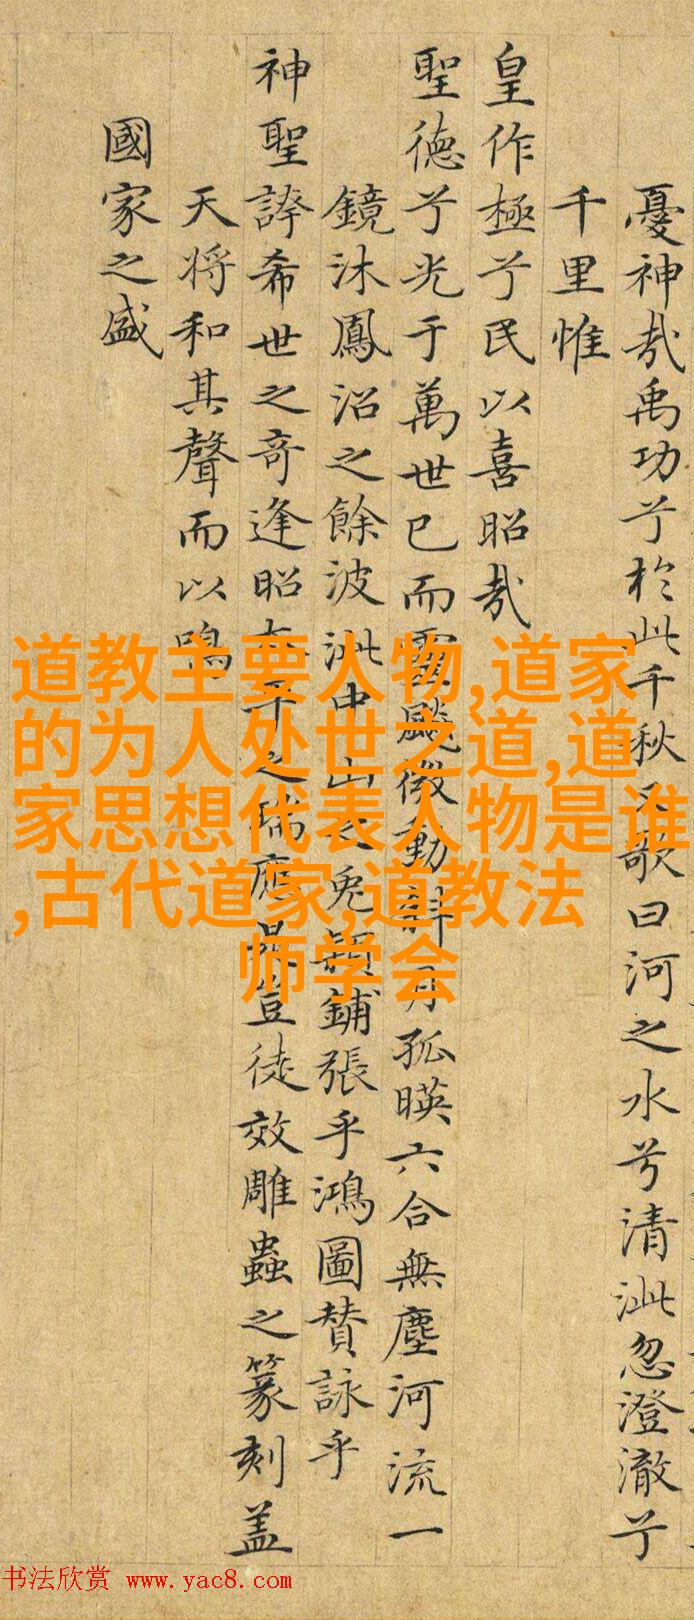 憂神哉禹功兮於此千秋又歌曰河之水兮清泚忽澄澈兮
千里惟
皇作極兮民以喜昭哉
聖德兮光于萬世已而靈飈微動詳月孤暎六合無塵河流一
鏡沐鳳沼之餘波泚中山之兔穎鋪張乎鴻圖賛詠乎
神聖誇希世之奇逢昭太平之瑞應是豈徒效雕蟲之篆刻盖
天将和其聲而以鳴
國家之盛
道教主要人物,道家
的为人处世之道,道
家思想代表人物是谁
,古代道家,道教法
师学会
书法欣赏 www.yac8.com